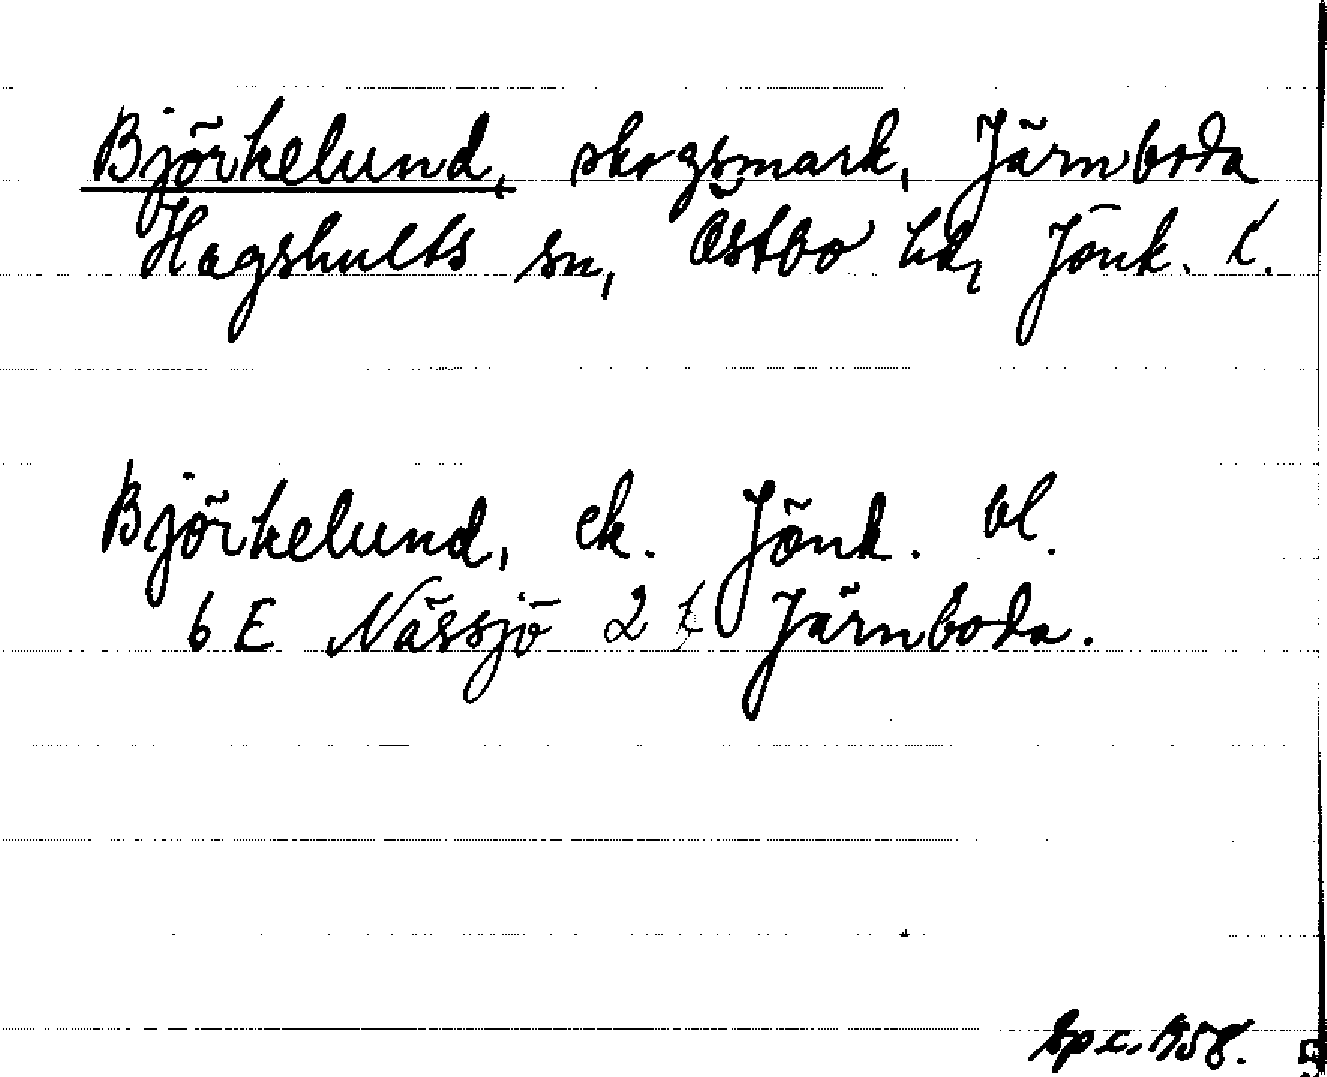 Björkelund, skogsmark, Järnboda
Hagshults sn, Östbo hd, Jönk. l.
Björkelund, ek. Jönk. bl.
6 E Nässjö 2 t Järnboda.
1958.